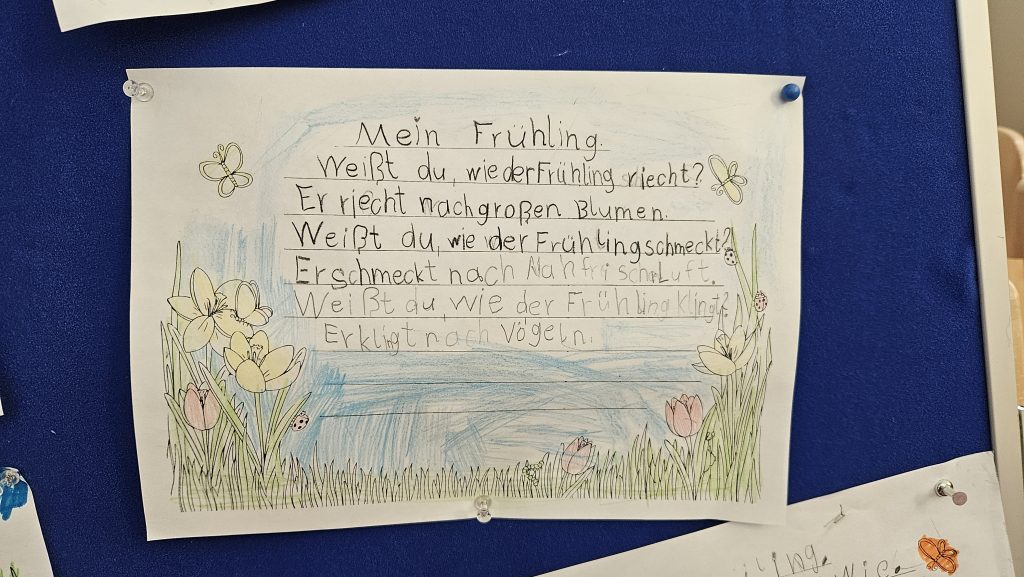 Mein Frühling.
Weißt du, wie der Frühling riecht?
Er riecht nach großen Blumen.
Weißt du, wie der Frühling schmeckt?
Er schmeckt nach Luft.
Weißt du, wie der Frühling klingt?
Er kligt nach Vögeln.